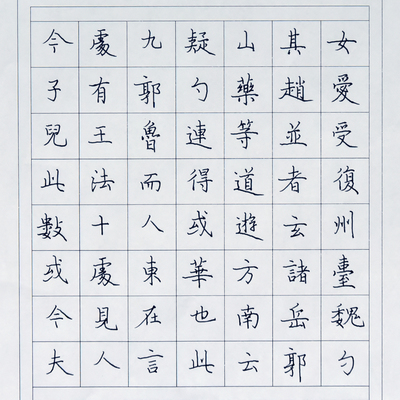 女愛受復州臺魏勺
其趙並者玄諸岳郭
山藥等道遊方南云
疑勺連得或華也此
九郭魯而人東在言
處有王法十處見人
今子兒此數或今夫